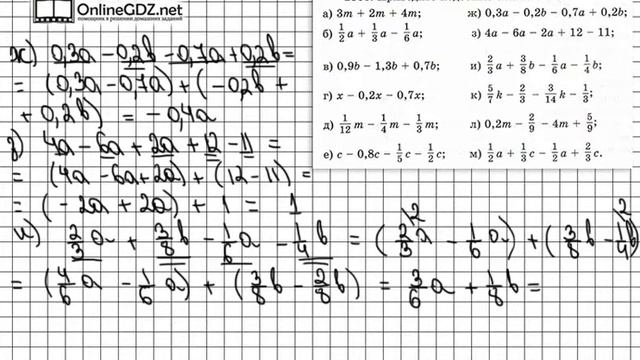 OnlineGDZ.net
помощник в решении домашних заданий
а) 3m + 2m + 4m;
б) 1/2 a + 1/3 a − 1/6 a;
в) 0,9b − 1,3b + 0,7b;
г) x − 0,2x − 0,7x;
д) 1/12 m − 1/4 m − 1/3 m;
е) c − 0,8c − 1/5 c − 1/2 c;
ж) 0,3a − 0,2b − 0,7a + 0,2b;
з) 4a − 6a − 2a + 12 − 11;
и) 2/3 a + 3/8 b − 1/6 a − 1/4 b;
к) 5/7 k − 2/3 − 3/14 k − 1/3;
л) 0,2m − 2/9 − 4m + 5/9;
м) 1/2 a + 1/3 c − 1/2 a + 2/3 c.
ж) 0,3a − 0,2b − 0,7a + 0,2b =
= (0,3a − 0,7a) + (−0,2b +
+ 0,2b) = −0,4a
з) 4a − 6a + 2a + 12 − 11 =
= (4a − 6a + 2a) + (12 − 11) =
= (−2a + 2a) + 1 = 1
и) 2/3 a + 3/8 b − 1/6 a − 1/4 b = (2/3 a − 1/6 a) + (3/8 b − 1/4 b)
= (4/6 a − 1/6 a) + (3/8 b − 2/8 b) = 3/6 a + 1/8 b =